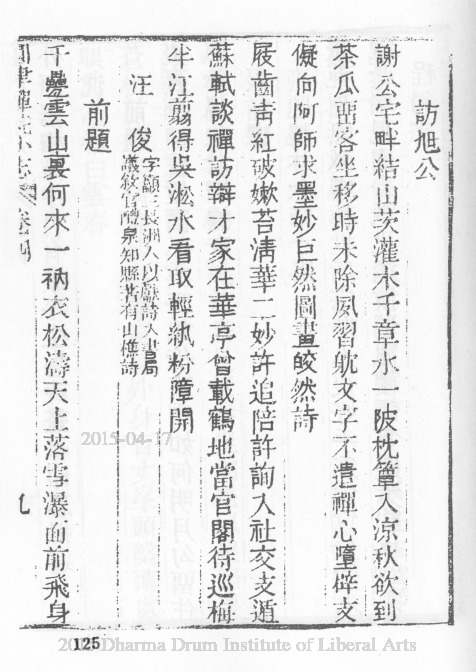 訪旭公
謝公宅畔結山茨灌木千章水一陂枕簟入涼秋欲到
茶瓜畱客坐移時未除風習躭文字不遣禪心墮辟支
儗向阿師求墨妙巨然圖畫皎然詩
屐齒靑紅破嫩苔淸華二妙許追陪許詢入社交支遁
蘇軾談禪訪辯才家在華亭曾載鶴地當官閣待巡梅
半江翦得吳淞水看取輕紈粉障開
汪俊
字顓三長洲人以獻詩入書局
議敘官醴泉知縣著有山樵詩
前題
千疊雲山暑何來一衲衣松濤天上落雪瀑面前飛身
志 卷四
九
125
2015-04-17
Dharma Drum Institute of Liberal Arts